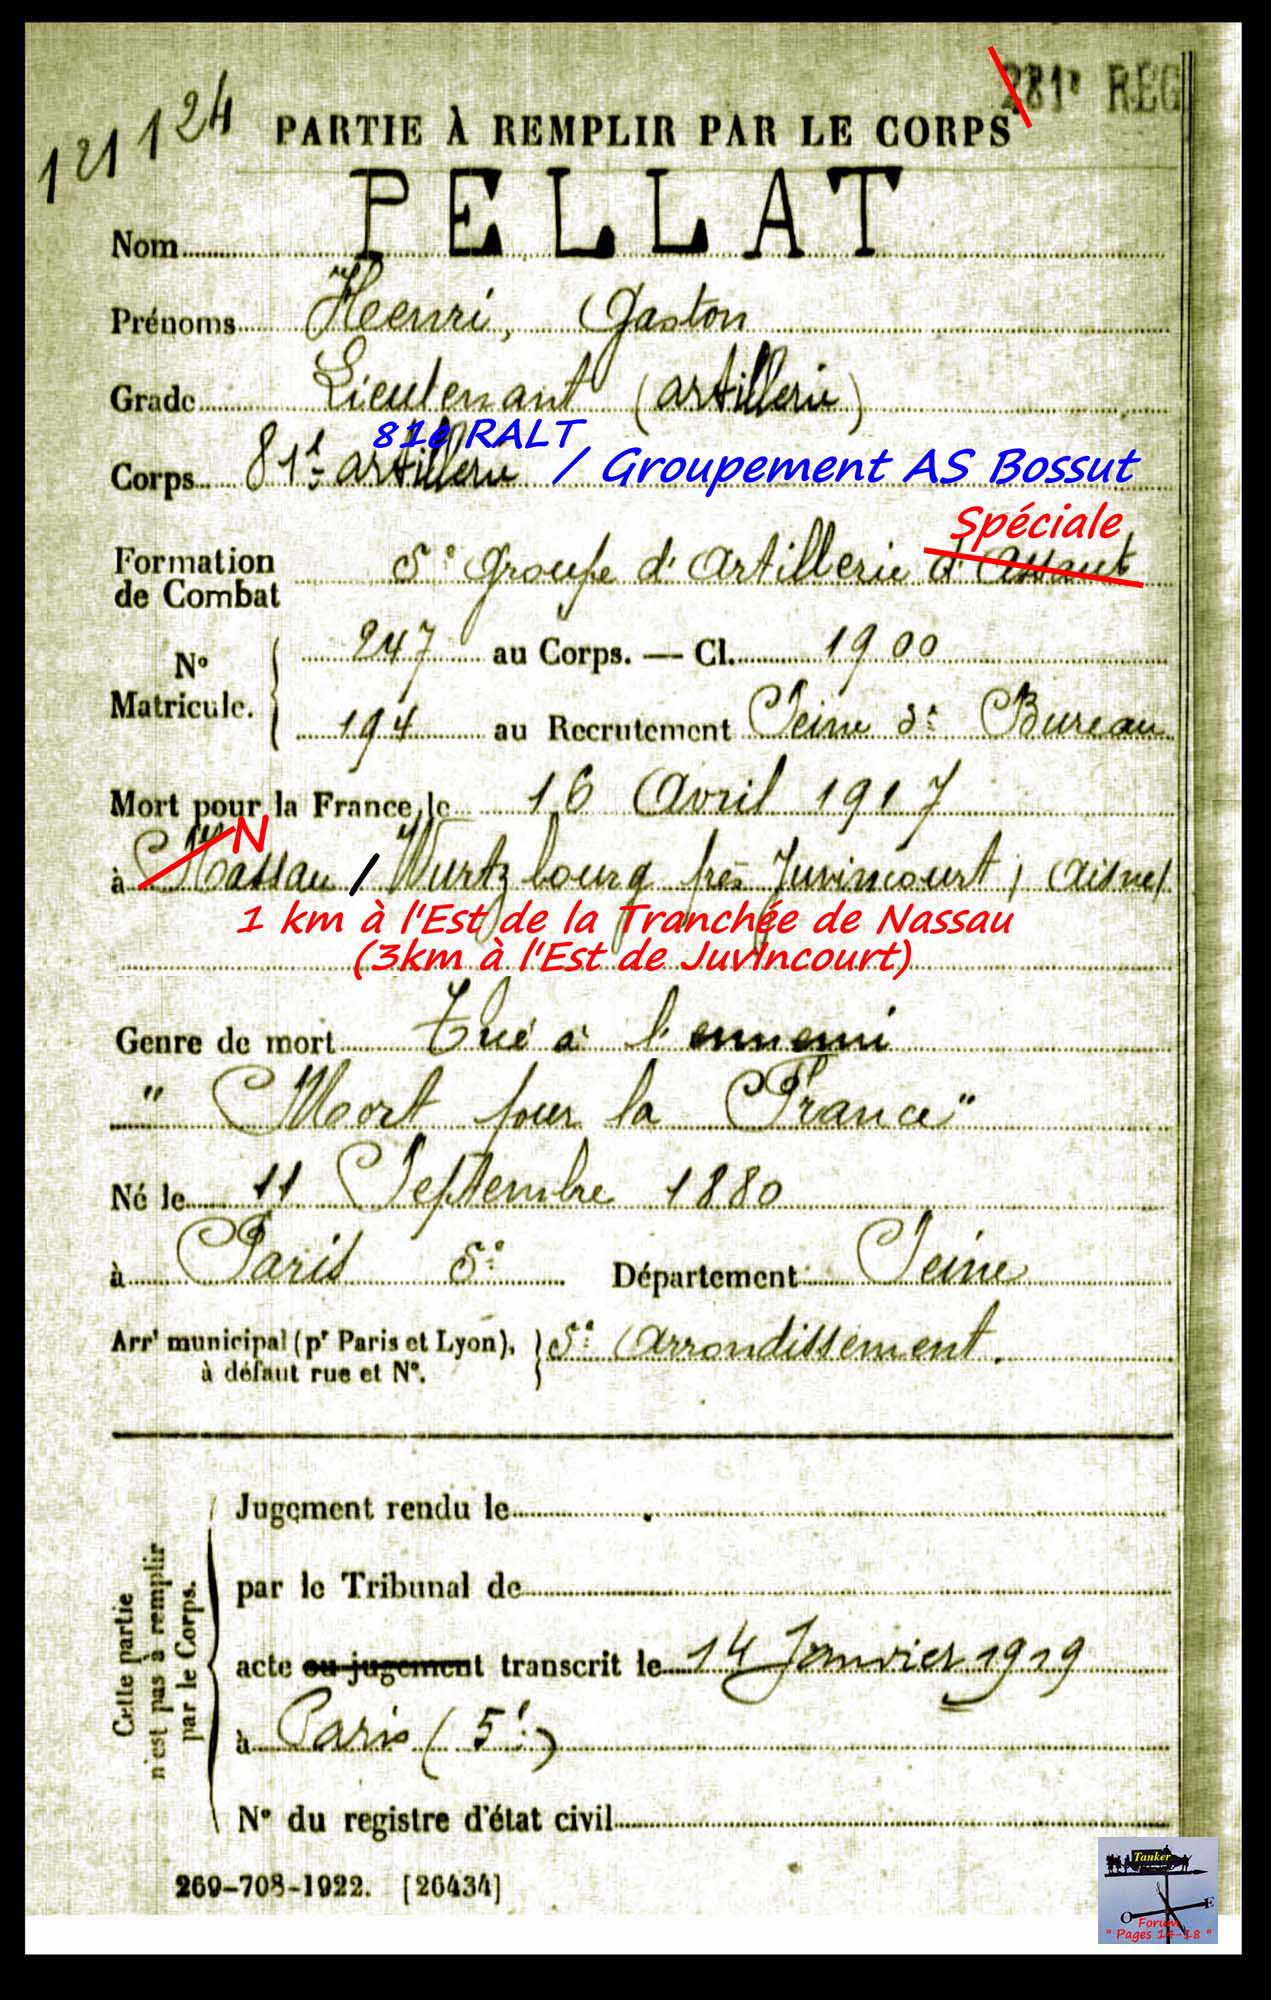 281e REG
121124
PARTIE À REMPLIR PAR LE CORPS
Nom PELLAT
Prénoms Henri, Gaston
Grade Lieutenant (artillerie)
81e RALT
Corps 81e artillerie / Groupement AS Bossut
Spéciale
Formation de Combat 5e Groupe d'Artillerie d'Assaut
No Matricule. 247 au Corps. — Cl. 1900
194 au Recrutement Seine 3e Bureau
Mort pour la France le 16 Avril 1917
N
à Massau / Wurtzbourg près Juvincourt (Aisne)
1 km à l'Est de la Tranchée de Nassau
(3km à l'Est de Juvincourt)
Genre de mort Tué à l'ennemi
" Mort pour la France "
Né le 11 Septembre 1880
à Paris 5e Département Seine
Arrt municipal (pr Paris et Lyon), 5e Arrondissement.
à défaut rue et No.
Cette partie
n'est pas à remplir
par le Corps.
Jugement rendu le
par le Tribunal de
acte ou jugement transcrit le 14 Janvier 1919
à Paris (5e)
No du registre d'état civil
269-708-1922. [26434]
Tanker
O E
Forum
" Pages 14-18 "